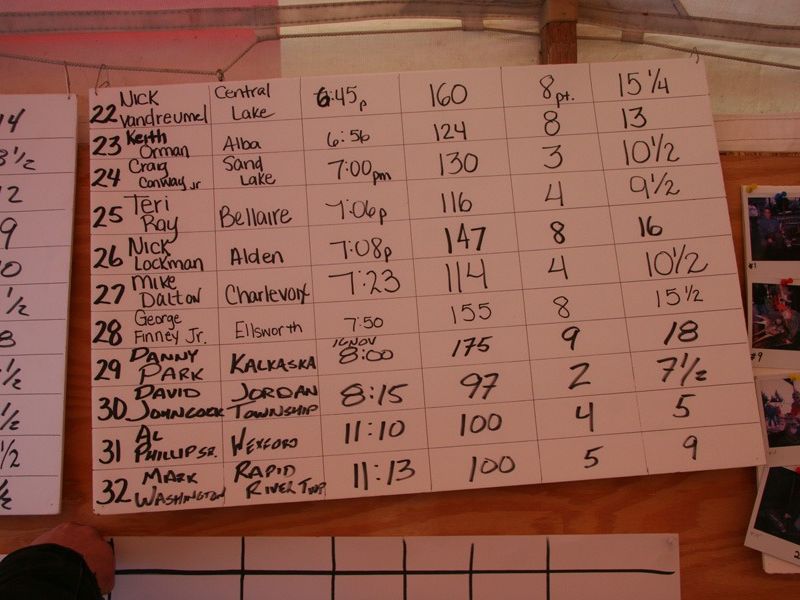 22 Nick Vandreumel Central Lake 6:45p 160 8pt. 15 1/4
23 Keith Orman Alba 6:56 124 8 13
24 Craig Conway Jr Sand Lake 7:00pm 130 3 10 1/2
25 Teri Ray Bellaire 7:06p 116 4 9 1/2
26 Nick Lockman Alden 7:08p 147 8 16
27 Mike Dalton Charlevoix 7:23 114 4 10 1/2
28 George Finney Jr. Ellsworth 7:50 155 8 15 1/2
29 Danny Park Kalkaska 16 Nov 8:00 175 9 18
30 David Johncock Jordan Township 8:15 97 2 7 1/2
31 Al Phillip Sr. Wexford 11:10 100 4 5
32 Mark Washington Rapid River Twp 11:13 100 5 9